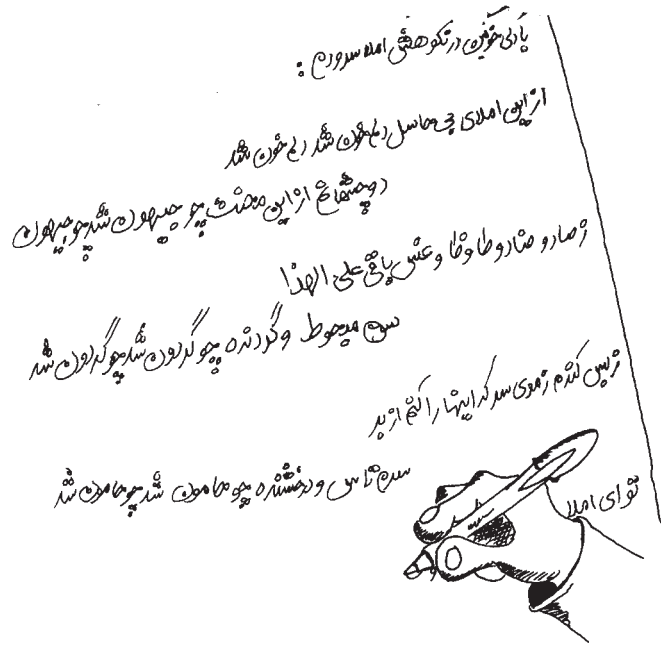 با دلی خونین در نکوهش املا سرودم :
از این املای بی حاسل دلم خون شد دلم خون شد
دو چشمانم از این محنت چو جیهون شد چو جیهون
ز صاد و ضاد و طا و ظا و عین باقی علی الهذا
سرم مبحوط و گردنده چو گردون شد چو گردون شد
ز بس کندم ز موی سر که اینها را کنم از بر
سرم تاس و درخشنده چو هامون شد چو هامون شد
تو ای املا